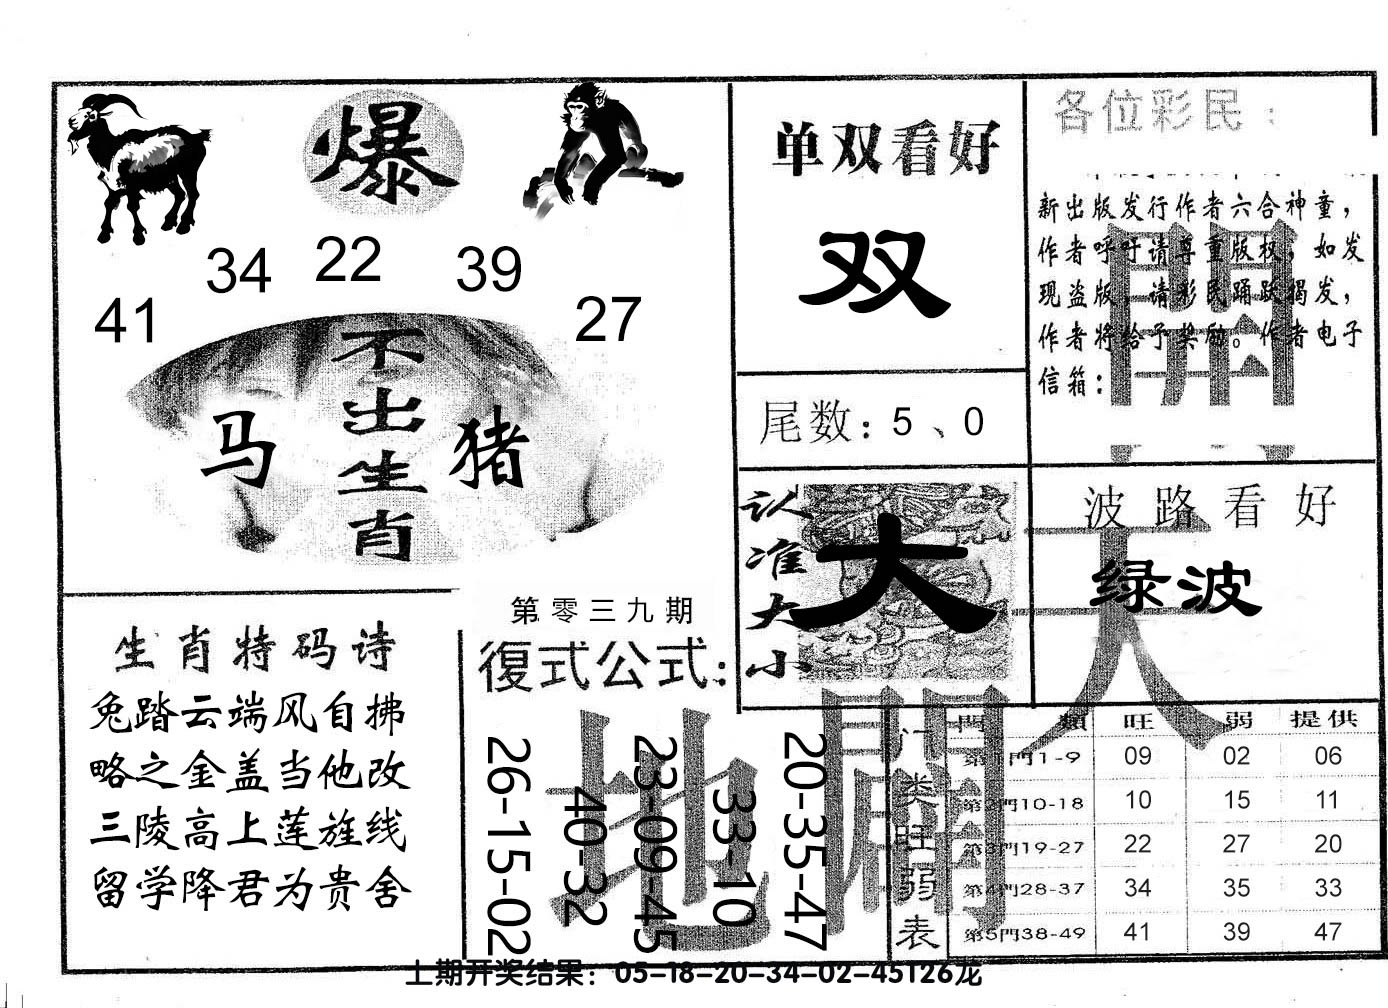 爆
34 22 39
41 27
不出生肖
马 猪
单双看好
双
尾数：5、0
各位彩民：
新出版发行作者六合神童，
作者呼吁请尊重版权，如发
现盗版，请彩民踊跃揭发，
作者将给予奖励。作者电子
信箱：
認准大小
大
波路看好
绿波
生肖特码诗
兔踏云端风自拂
略之金盖当他改
三陵高上莲旌线
留学降君为贵舍
第零三九期
復式公式：
26-15-02
40-32
23-09-45
33-10
20-35-47
天
地
開
門类旺弱表
門類 旺 弱 提供
第1門1-9 09 02 06
第2門10-18 10 15 11
第3門19-27 22 27 20
第4門28-37 34 35 33
第5門38-49 41 39 47
上期开奖结果：05-18-20-34-02-45T26龙